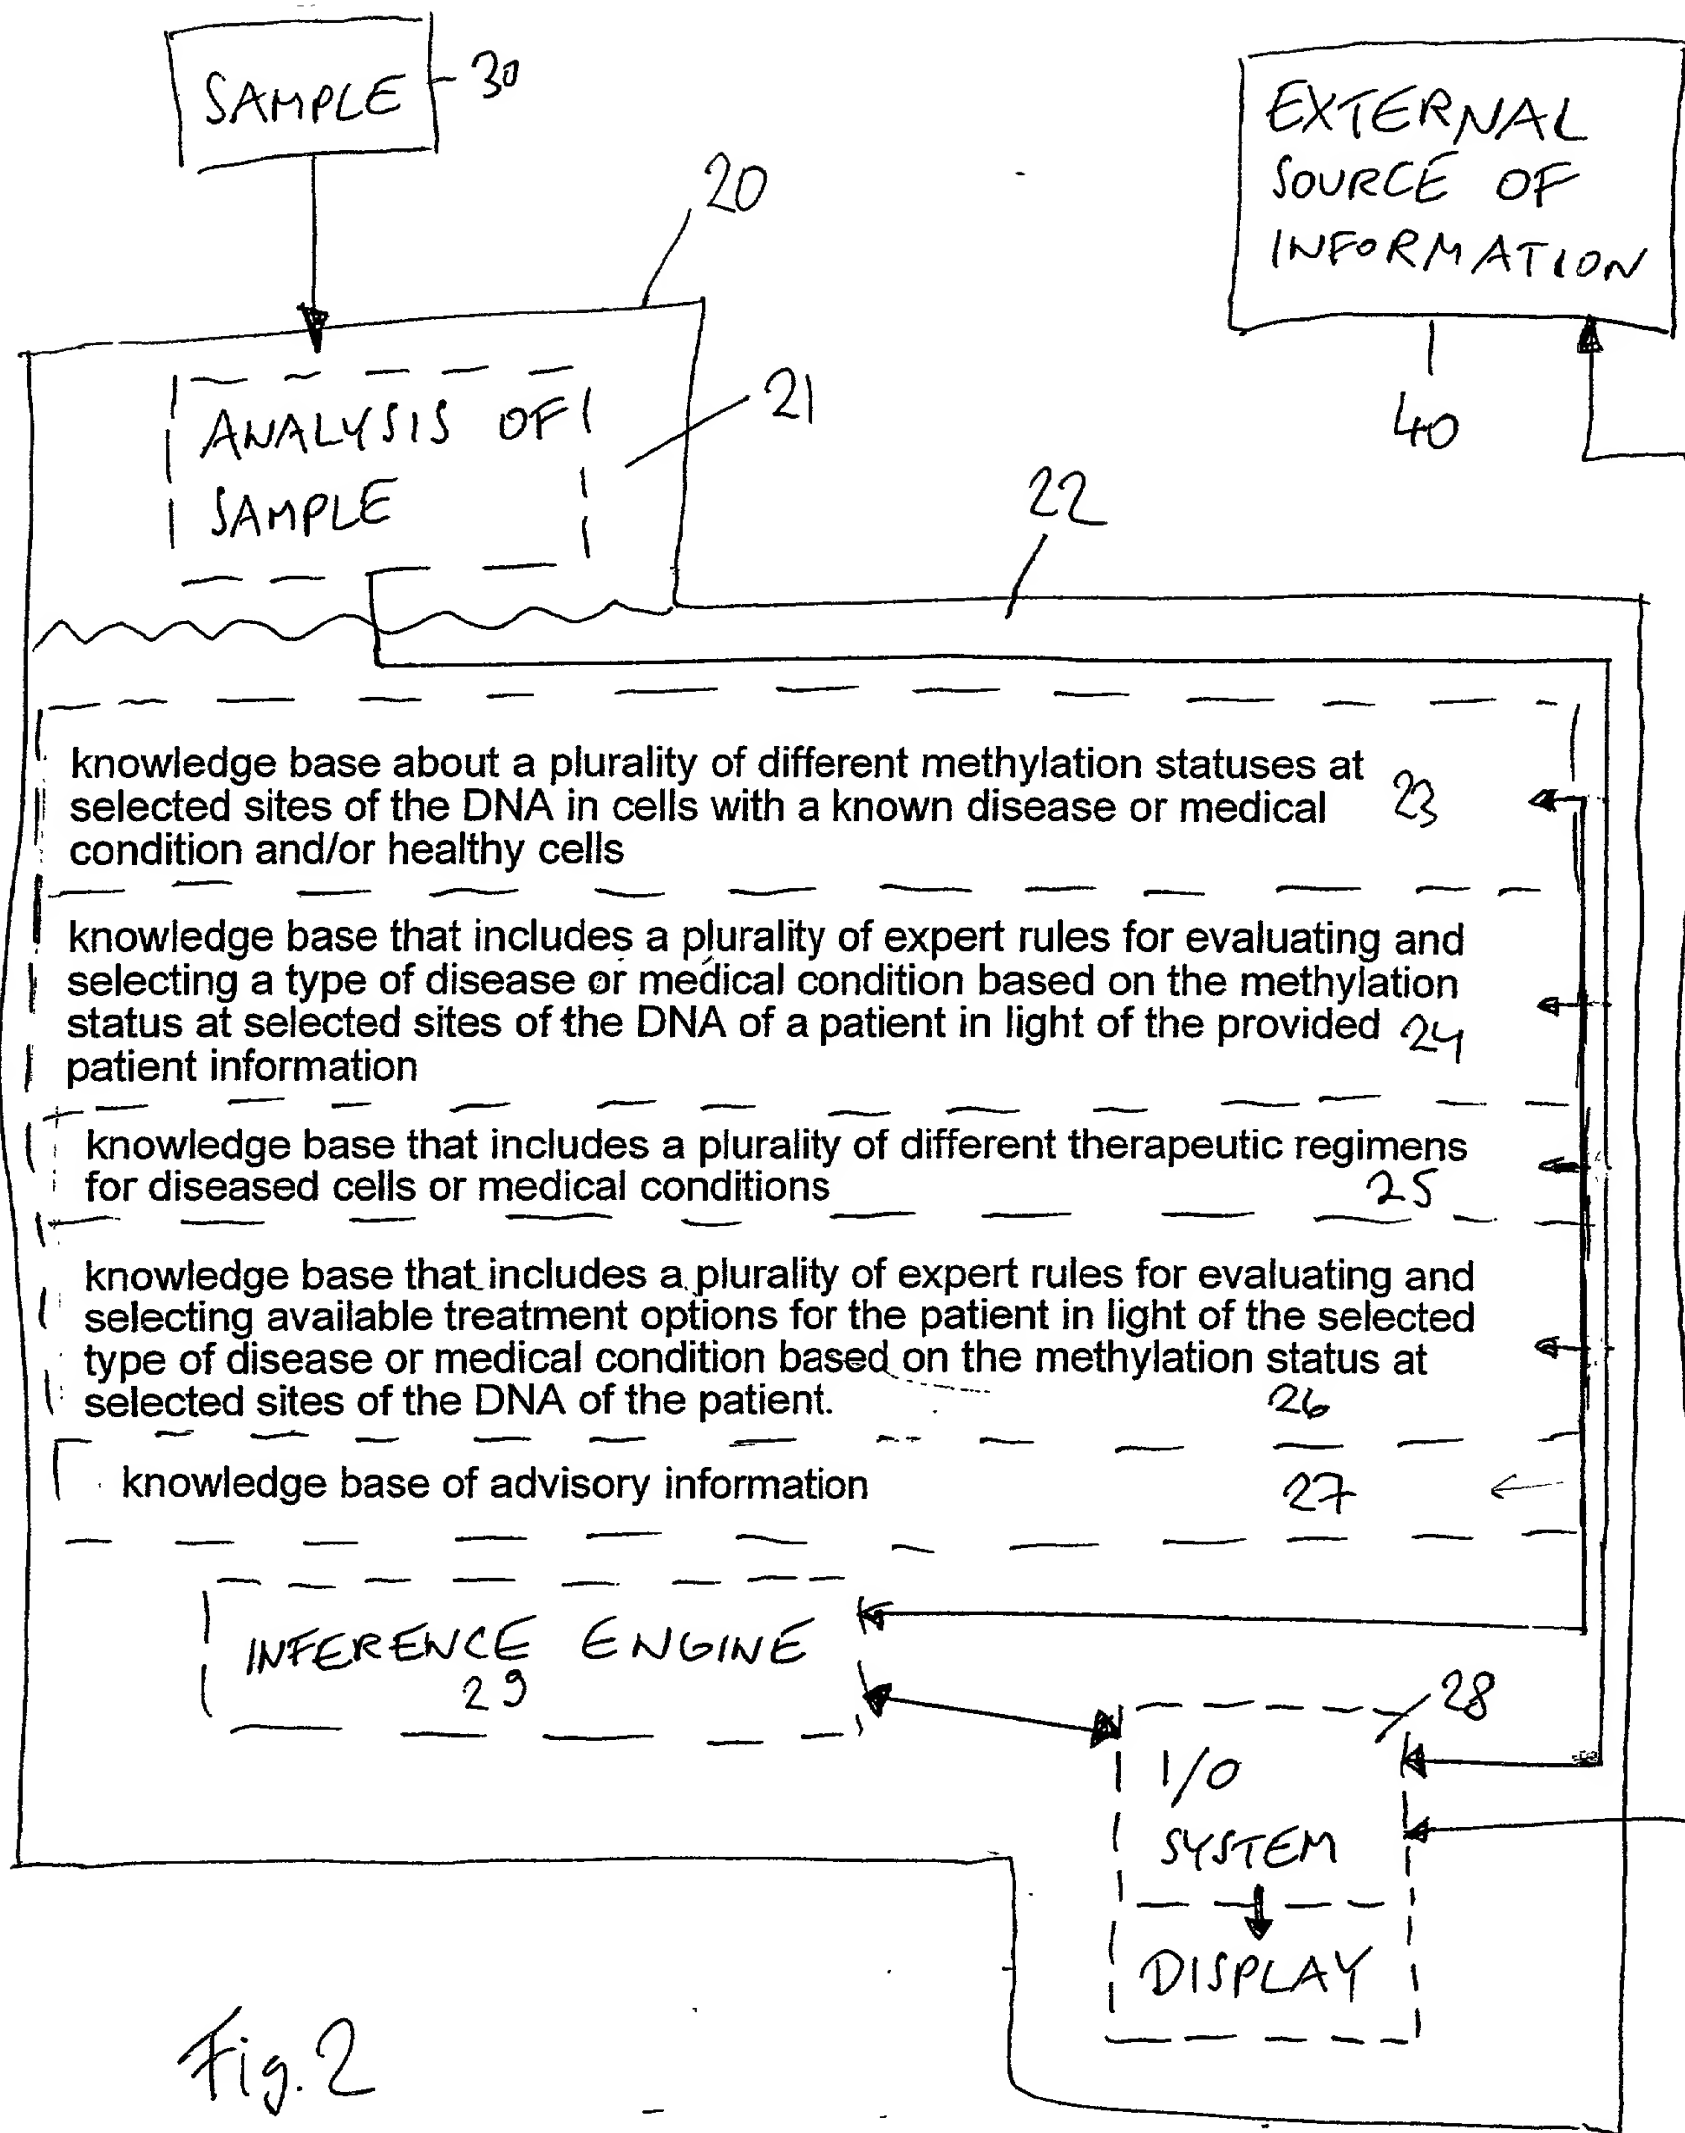 SAMPLE
30
EXTERNAL
SOURCE OF
INFORMATION
40
20
ANALYSIS OF
SAMPLE
21
22
knowledge base about a plurality of different methylation statuses at
selected sites of the DNA in cells with a known disease or medical
condition and/or healthy cells
23
knowledge base that includes a plurality of expert rules for evaluating and
selecting a type of disease or medical condition based on the methylation
status at selected sites of the DNA of a patient in light of the provided
patient information
24
knowledge base that includes a plurality of different therapeutic regimens
for diseased cells or medical conditions
25
knowledge base that includes a plurality of expert rules for evaluating and
selecting available treatment options for the patient in light of the selected
type of disease or medical condition based on the methylation status at
selected sites of the DNA of the patient.
26
knowledge base of advisory information
27
INFERENCE ENGINE
29
28
I/O
SYSTEM
DISPLAY
Fig. 2